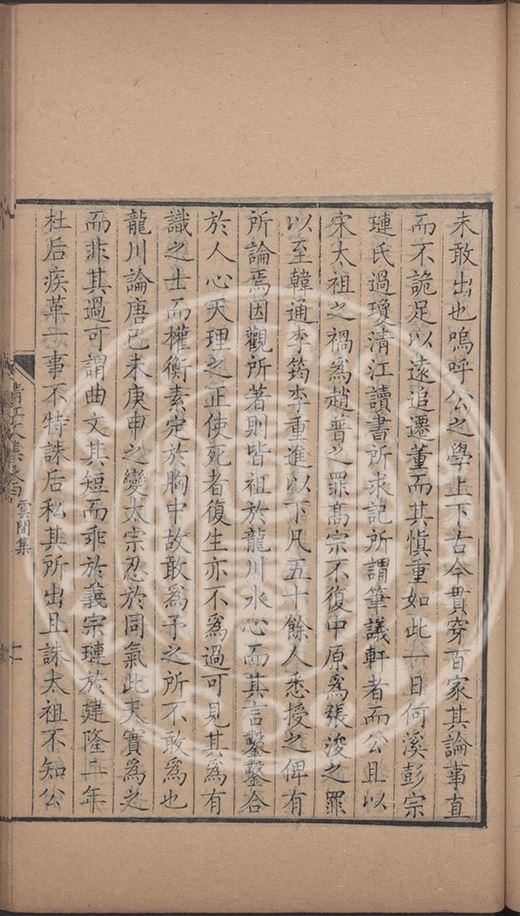 未敢出也嗚呼公之學上下古今貫穿百家其論事直
而不詭足以遠追遷董而其慎重如此一日何溪彭宗
璉氏過瓊清江讀書所求記所謂筆議軒者而公且以
宋太祖之禍爲趙普之罪高宗不復中原爲張浚之罪
以至韓通李筠李重進以下凡五十餘人悉授之俾有
所論焉因觀所著則皆祖於龍川水心而其言鑿鑿合
於人心天理之正使死者復生亦不爲過可見其爲有
識之士而權衡素定於胸中故敢爲予之所不敢爲也
龍川論唐已未庚申之變太宗忍於同氣此天實爲之
而非其過可謂曲文其短而乖於義宗璉於建隆二年
杜后疾革一事不特誅后私其所出且誅太祖不知公
清江文集卷
雲間集
十一